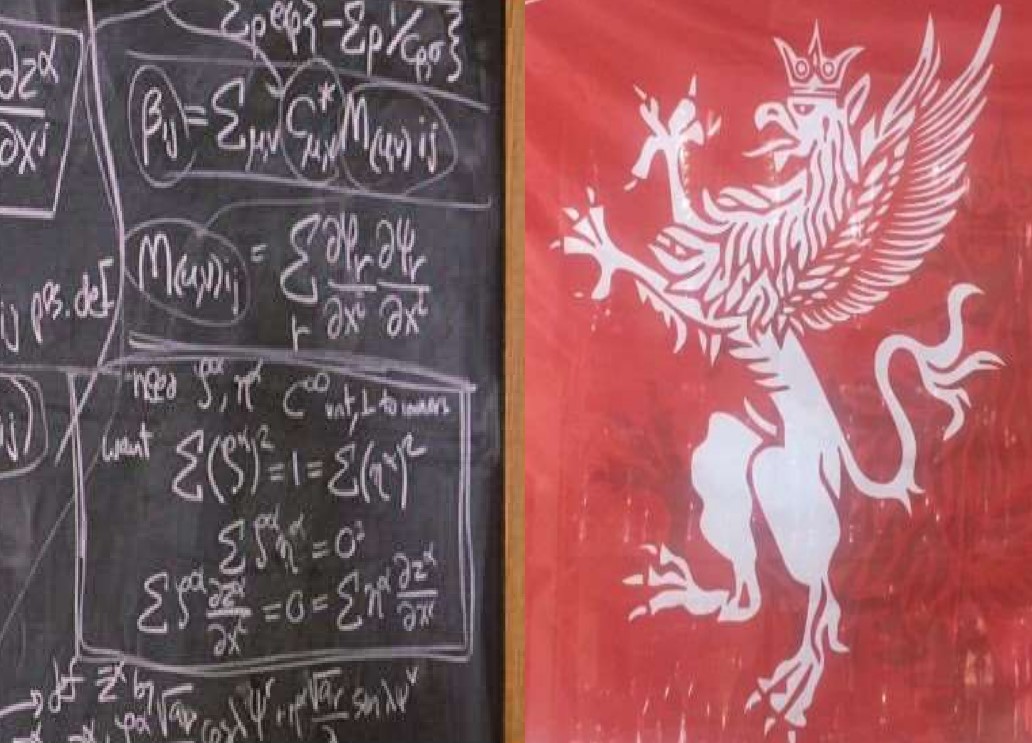 ∂z^α/∂x^j
Σρ e(ρ} − Σρ'/Cρ,σ}
β_ij = Σ_μ,ν C*_μ,ν M_(μ,ν) ij
M_(μ,ν) ij = Σ_r ∂ψ_r/∂x^i ∂ψ_r/∂x^i
ij pos. def
need ζ^α, η^α C^∞ unt, ⊥ to
ij)
want Σ(ζ^α)² = 1 = Σ(η^α)²
Σ ζ^α η^α = 0
Σ ζ^α ∂z^α/∂x^i = 0 = Σ η^α ∂z^α/∂x^i
→ def z^α by
√a_r cos λψ^r + η^α √a_r/λ sin λψ^r